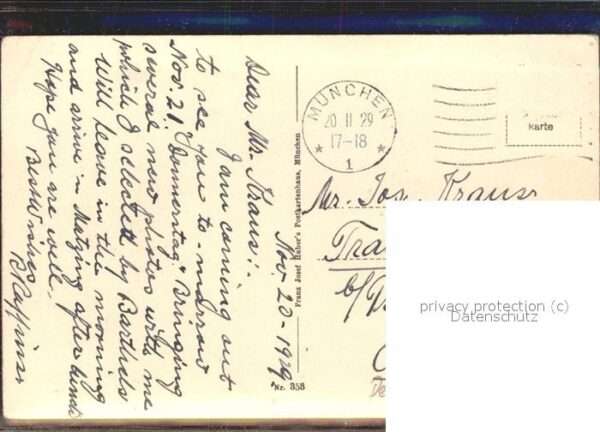 Nov. 20 - 1929
Dear Mr. Kraus! -
I am coming out
to see you to-morrow
Nov. 21. Donnerstag. Bringing
several new photos with me
which I selected by Barthels
Will leave in the morning
and arrive in Matzing after
Hope you are well.
Best Wishes
Franz Josef Huber's Postkartenhaus, München
Nr. 358
MÜNCHEN
20 11 29
17-18
* 1 *
karte
Mr. Jos. Kraus
Tra
privacy protection (c)
Datenschutz